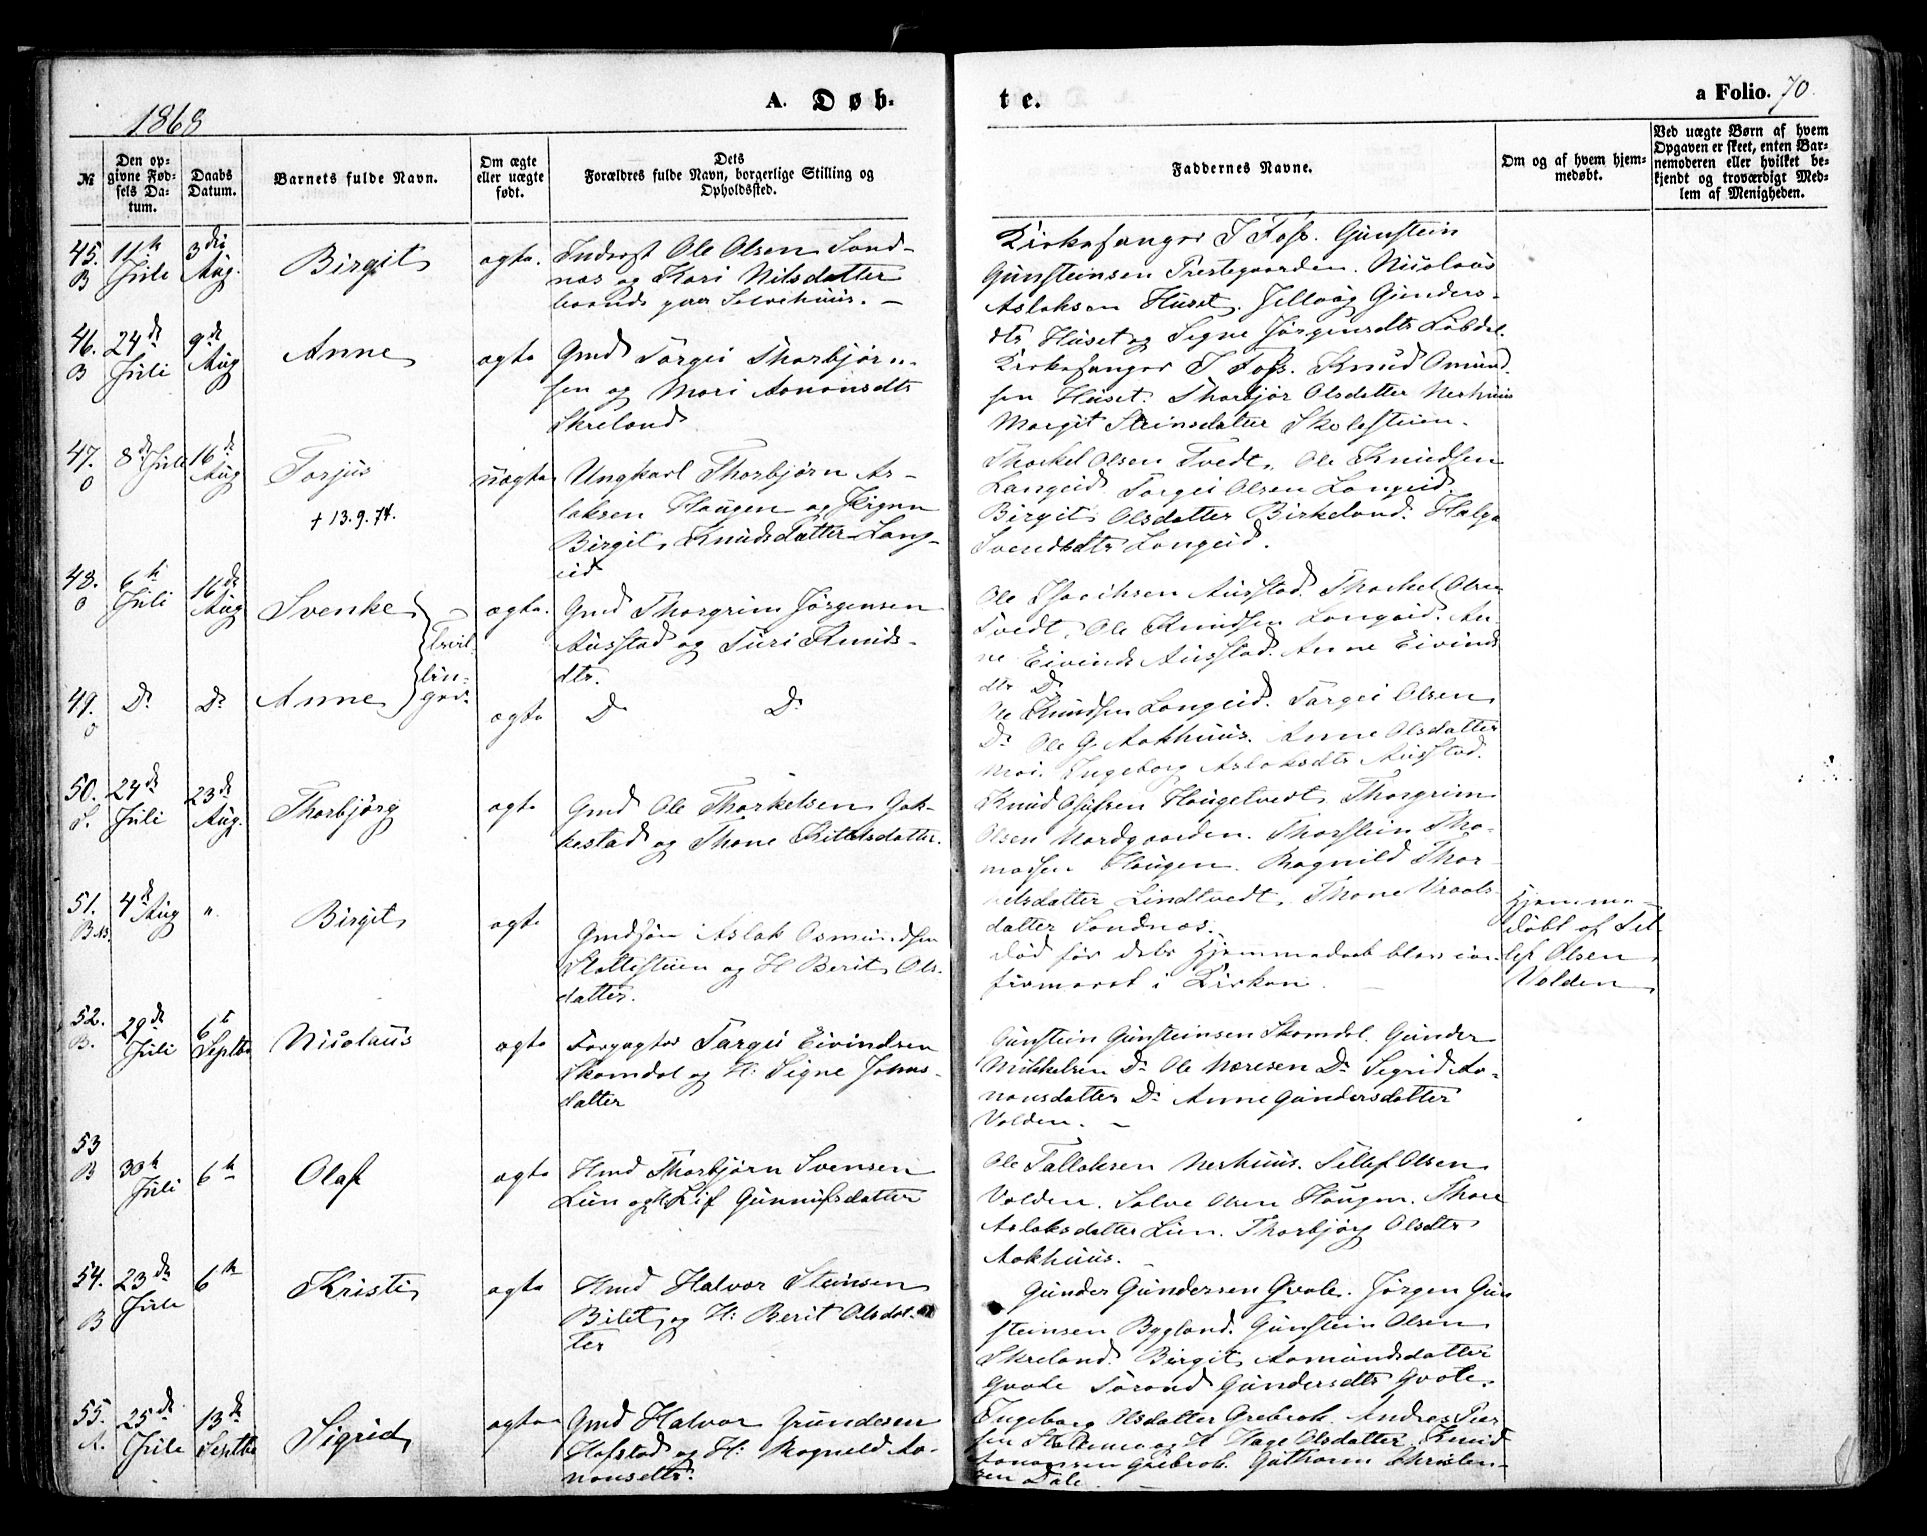 1868
A. Døb-
te.
a Folio. 70.
№
Den op-
givne Fød-
sels Da-
tum.
Daabs
Datum.
Barnets fulde Navn.
Om ægte
eller uægte
født.
Dets
Forældres fulde Navn, borgerlige Stilling og
Opholdssted.
Faddernes Navne.
Om og af hvem hjem-
medøbt.
Ved uægte Børn af hvem
Opgaven er skeet, enten Bar-
nemoderen eller hvilket be-
kjendt og troværdigt Med-
lem af Menigheden.
45.
B
11th
Juli
3die
Aug.
Birgit
ægte.
Inderst Ole Olsen Sand-
næs og Kari Nilsdatter
boende paa Solvehuus. -
Kirkesanger T Foss. Gunstein
Gunsteinsen Prestegaarden. Nicolaus
Aslaksen Huset. Jellvög Gunders-
dtr Huset og Signe Jørgensdtr Løbdal.
46.
B
24de
Juli
9de
Aug
Anne
ægte
Gmd Torgei Thorbjørn-
sen og Mari Aanonsdtr
Skreland
Kirkesanger T Foss. Knud Omund
sen Huset. Thorbjør Olsdatter Neshuus
Margit Steinsdatter Skolestuen.
47.
O
8de Juli
16de
Aug
Torjus
† 13.9.74.
uægte
Ungkarl Thorbjørn As-
laksen Haugen og Pigen
Birgit Knudsdatter Lang-
eid
Thorkel Olsen Tvedt. Ole Knudsen
Langeid Torgei Olsen Langeid
Birgit Olsdatter Birkeland. Helga
Svendsdtr Langeid.
48.
O
6th
Juli
16de
Aug
Svenke
Tvil-
lin-
ger
ægte.
Gmd Thorgrim Jørgensen
Austad og Turi Knuds-
dtr.
Austad. Thorkel Olsen
Tvedt. Ole Knudsen Langeid. An-
ne Eivinds Austad. Anne Eivinds
dtr Do
49.
O
Do
Do
Anne
ægte
Do Do
Ole Knudsen Langeid. Torgei Olsen
Do Ole G. Aakhuus. Anne Olsdatter
Moi. Ingeborg Aslaksdtr Austad.
50.
S.
24de
Juli
23de
Aug.
Thorbjörg
ægte
Gmd Ole Thorkelsen Gak-
kestad og Thone Kittelsdatter.
Knud Olufsen Haugetvedt. Thorgrim
Olsen Nordgaarden. Thorstein Tho-
massen Haugen. Ragnild Thor-
kelsdatter Lindtvedt. Thone Vraals-
datter Sandnæs.
51.
4de Aug
"
Birgit
ægte
Gmdsøn Aslak Osmundsen
Stallestuen og H Berit Ols-
datter.
Død før dets Hjemmedaab blev con-
firmeret i Kirken.
Hjemme-
døbt af Tel-
lef Olsen
Valden
52.
B.
29de
Juli
6te
Septbr
Nicolaus
ægte
Forpagter Torgei Eivindsen
Skomdal og H: Signe Johns-
datter
Gunstein Gunsteinsen Skomdal. Gunder
Mikkelsen Do Ole Næresen Do Segrid Aa-
nonsdatter Do Anne Gundersdatter
Valden. -
53
B
30th
Juli
6th
Olaf
ægte
Hmd Thorbjørn Svensen
Lien og H: Lif Gunnufsdatter
Ole Tallaksen Neshuus. Tellef Olsen
Valden. Salve Olsen Haugen. Thore
Aslaksdatter Lien. Thorbjørg Olsdtr
Aakhuus.
54.
B
23de
Juli
6th
Kristi
ægte
Hmd Halvor Steinsen
Bilet og H: Berit Olsdat-
ter
Gunder Gundersen Gvale. Jørgen Gun
steinsen Bygland. Gunstein Olsen
Skreland. Birgit Aamundsdatter
Gvale Torand Gundersdtr Gvale.
55.
A.
25de
Juli
13de
Septbr
Sigrid
ægte
Gmd Halvor Gundersen
Hofstad og H: Ragnild Aa-
nonsdtr.
Ingeborg Olsdatter Grebrok. Andreas Peer-
sen og H Hage Olsdatter. Knud
Aanonsen Grebrok. Guthorm Christen-
sen Dale. -